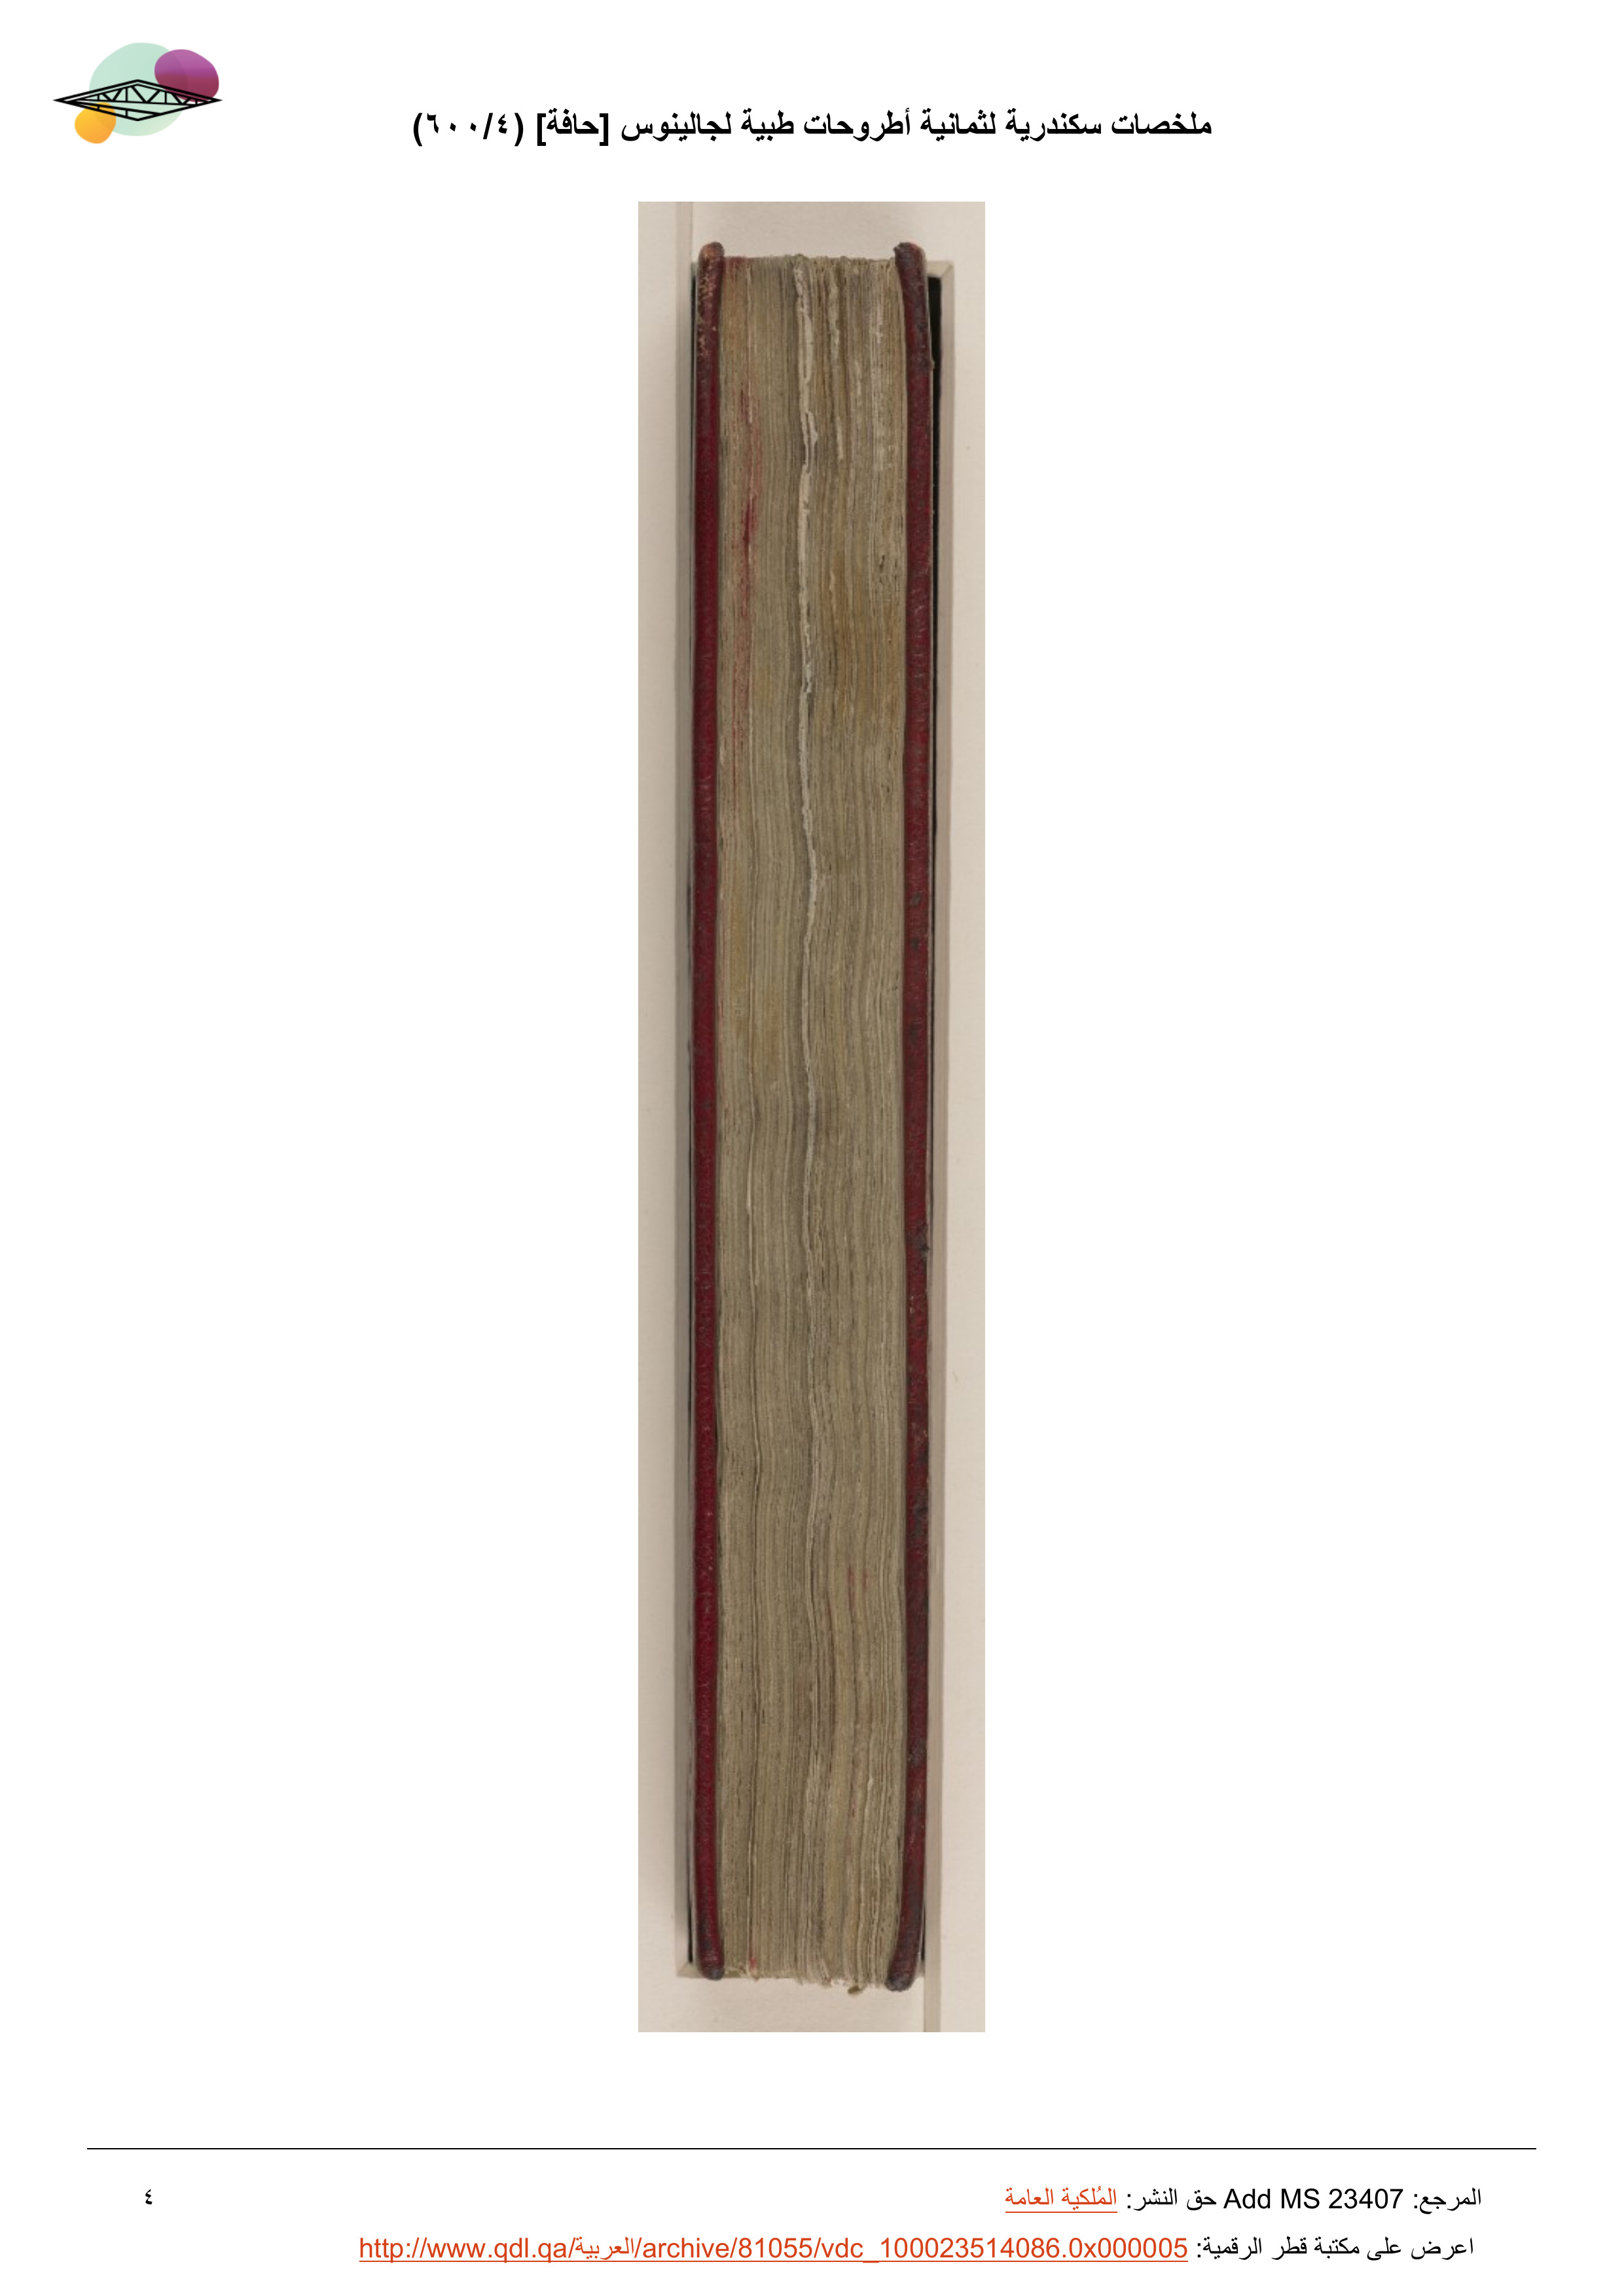 ملخصات سكندرية لثمانية أطروحات طبية لجالينوس [حافة] (٦٠٠/٤)
المرجع: Add MS 23407 حق النشر: المُلكية العامة
٤
اعرض على مكتبة قطر الرقمية: http://www.qdl.qa/العربية/archive/81055/vdc_100023514086.0x000005